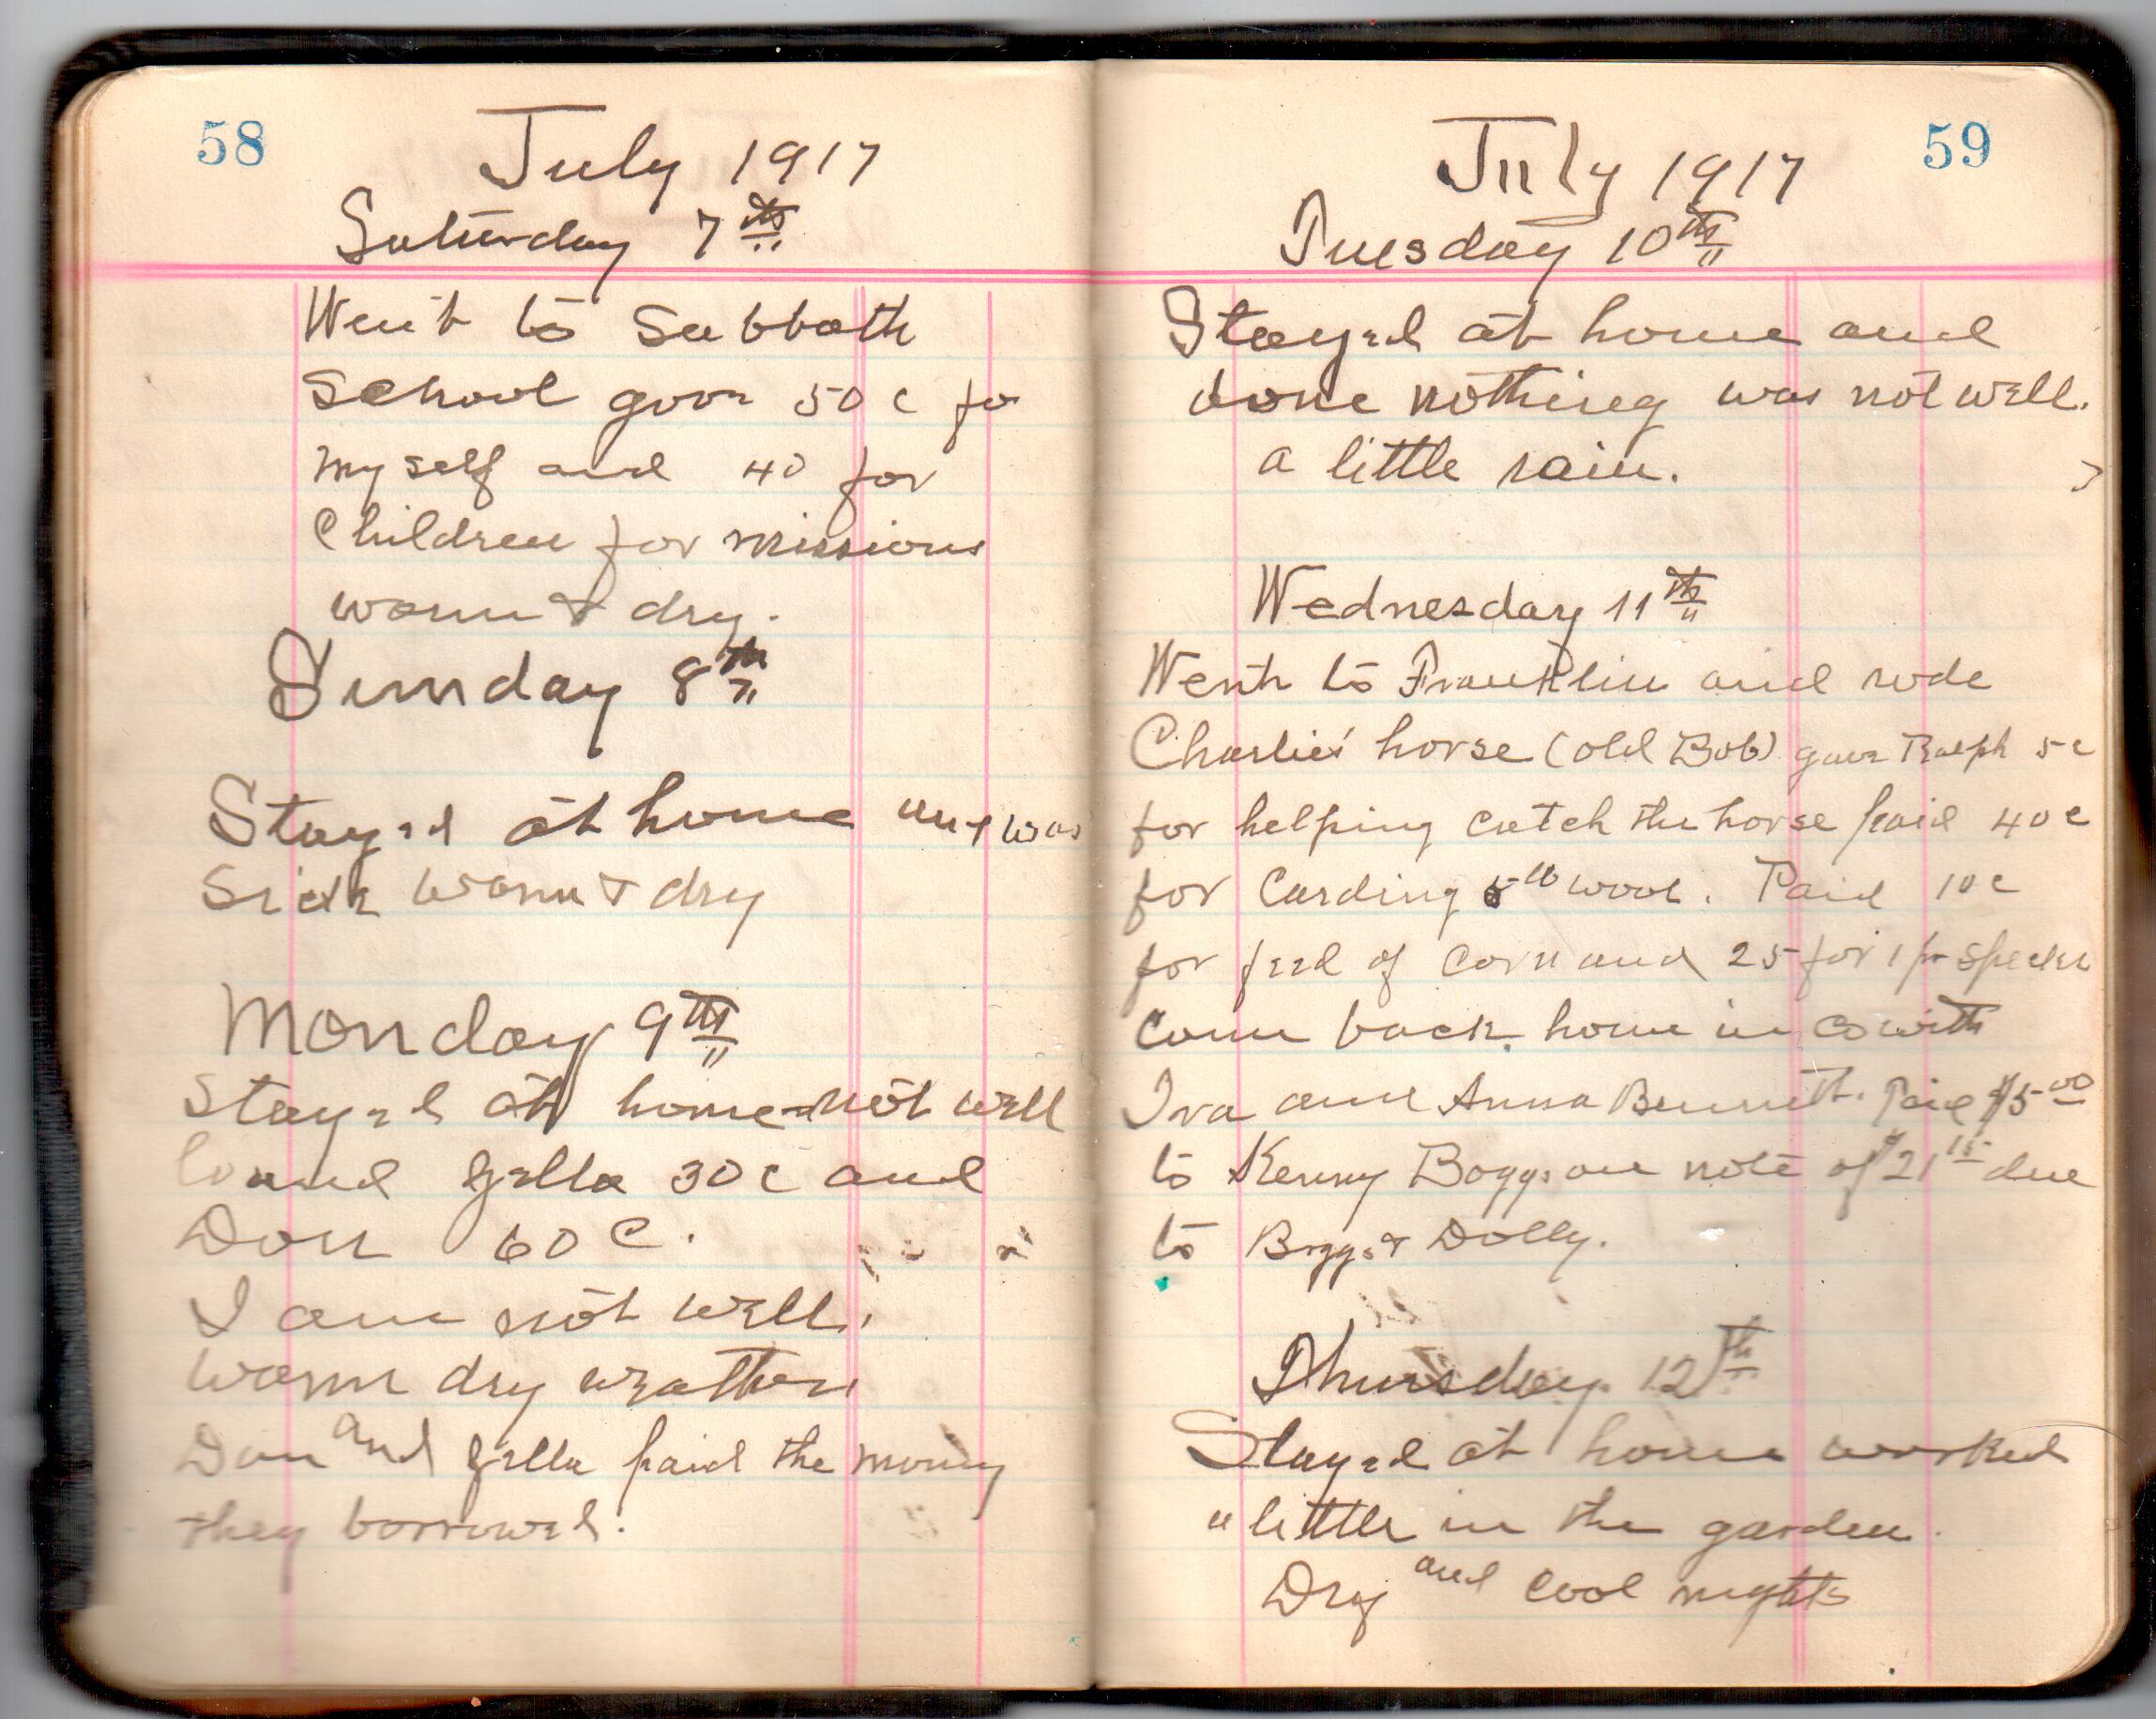 58
July 1917
Saturday 7th
Went to Sabbath
School gave 50c for
myself and 40 for
Children for missions
warm & dry.
Sunday 8th
Stayed at home and was
Sick warm & dry
Monday 9th
Stayed at home not well
loaned Zella 30c and
Don 60c.
I am not well.
warm dry weather
Don and Zella paid the money
they borrowed.
59
July 1917
Tuesday 10th
Stayed at home and
done nothing was not well.
a little rain.
Wednesday 11th
Went to Franklin and rode
Charlies' horse (old Bob) gave Ralph 5c
for helping catch the horse paid 40c
for Carding 5lb wool. Paid 10c
for feed of corn and 25 for 1 pr specks
Come back home in co with
Ira and Anna Bennett. Paid $5.00
to Kenny Boggs on note of $21 15 due
to Boggs & Dolly.
Thursday 12th
Stayed at home worked
a little in the garden.
Dry and cool nights